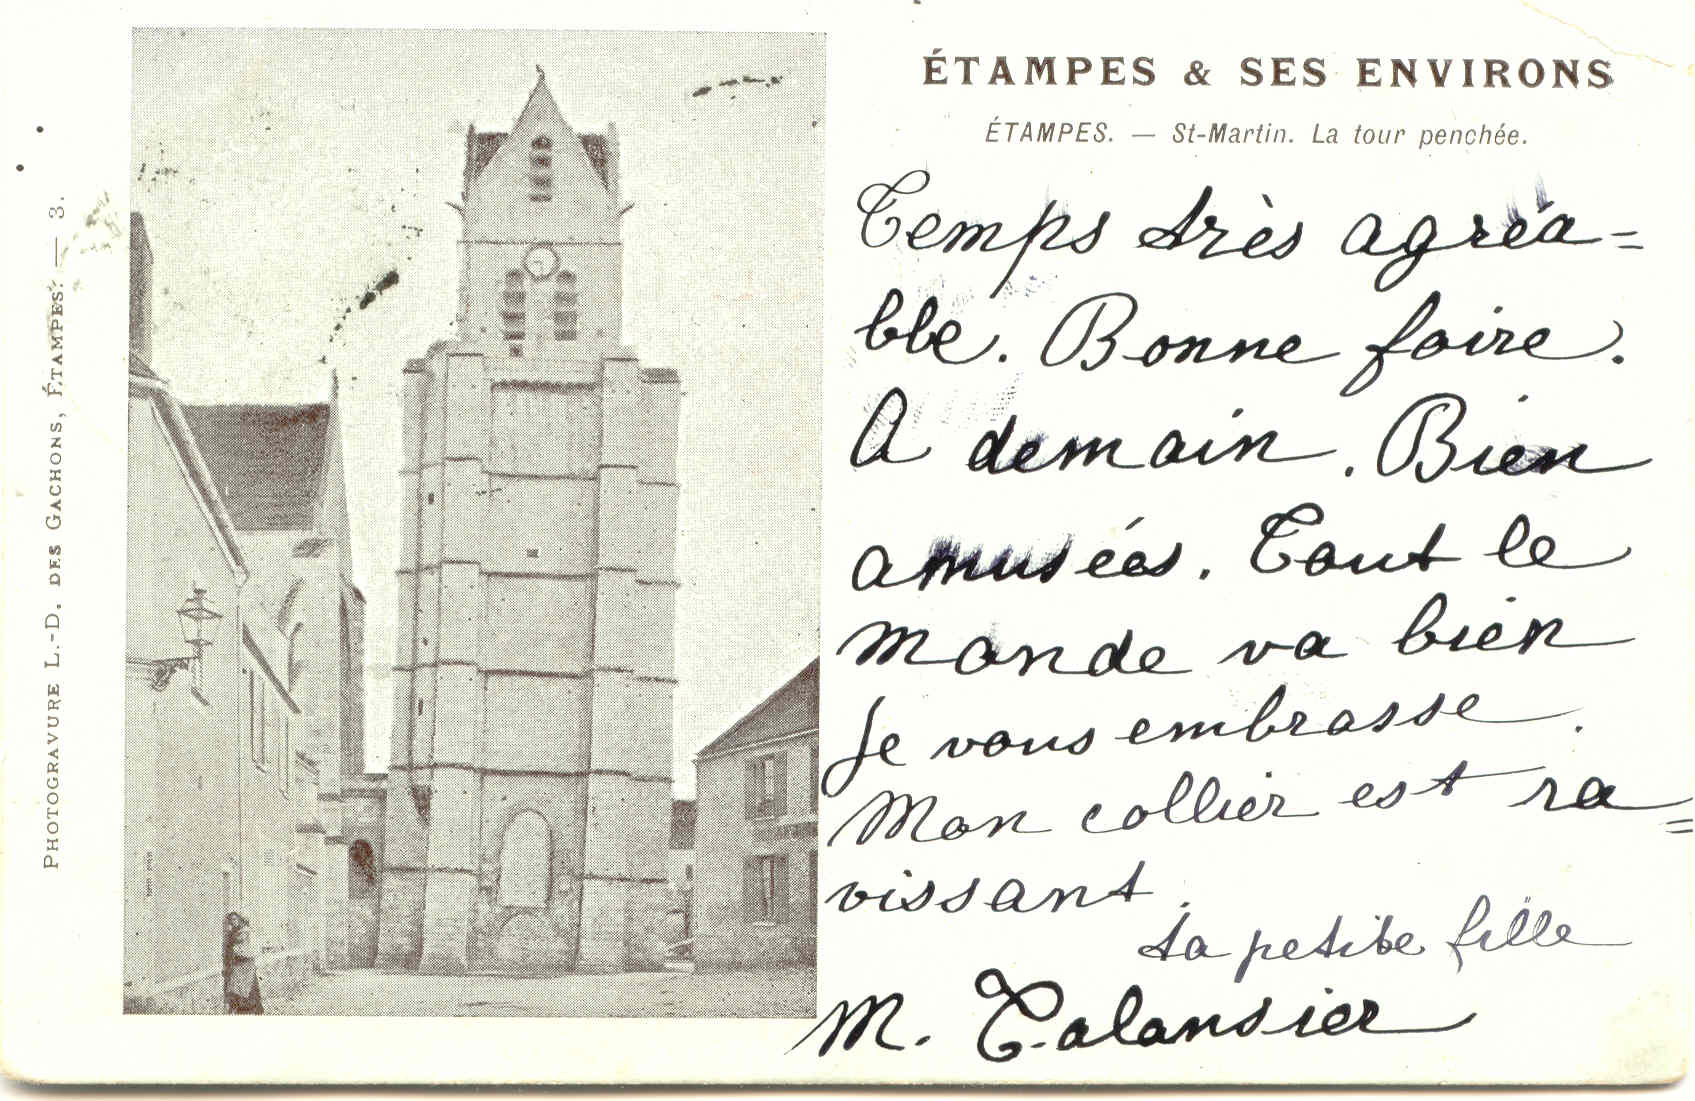 ÉTAMPES & SES ENVIRONS
ÉTAMPES. — St-Martin. La tour penchée.
Temps très agréa=
ble. Bonne foire.
A demain. Bien
amusées. Tout le
monde va bien
Je vous embrasse.
Mon collier est ra=
vissant.
ta petite fille
M. Talansier
PHOTOGRAVURE L.-D. DES GACHONS, ÉTAMPES. — 3.